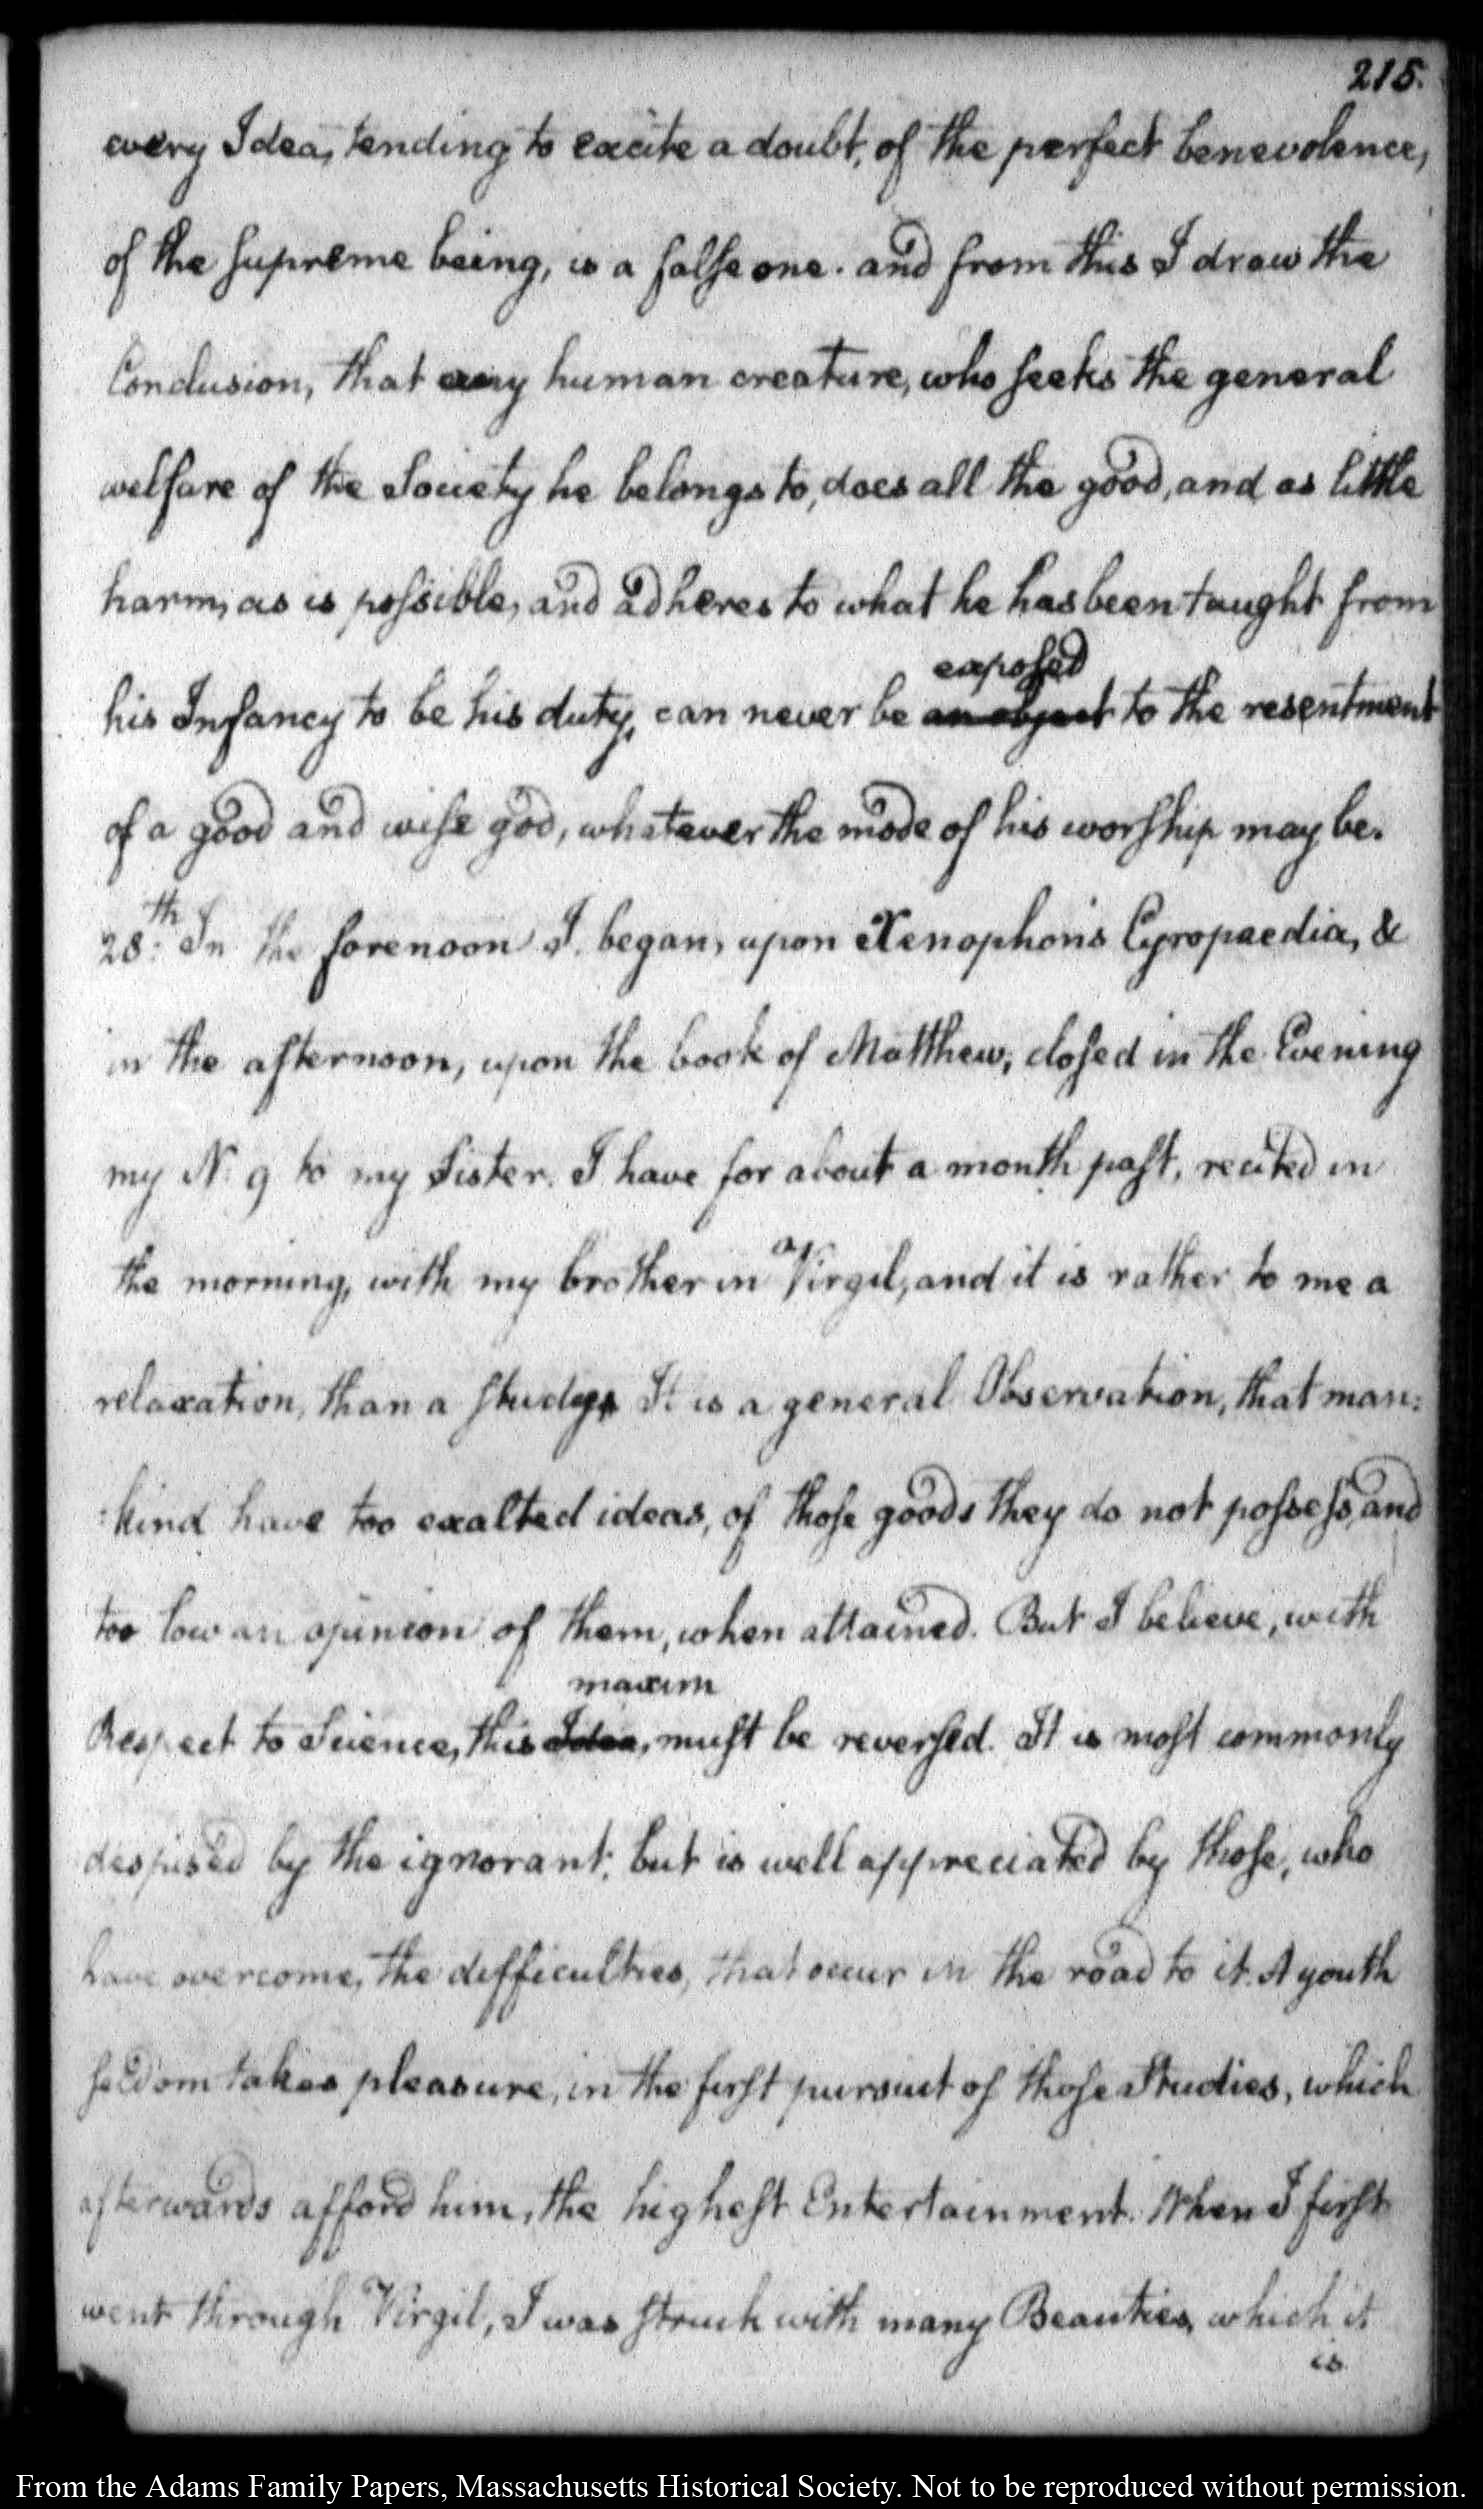 215.
every Idea, tending to excite a doubt, of the perfect benevolence,
of the supreme being, is a false one. and from this I draw the
Conclusion, that any human creature, who seeks the general
welfare of the Society he belongs to, does all the good, and as little
harm, as is possible, and adheres to what he has been taught from
exposed
his Infancy to be his duty, can never be an object to the resentment
of a good and wise god, whatever the mode of his worship may be.
28.th In the forenoon I began, upon Xenophon's Cyropaedia, &
in the afternoon, upon the book of Matthew, closed in the Evening
my N. 9 to my Sister. I have for about a month past, recited in
the morning, with my brother in Virgil, and it is rather to me a
relaxation, than a study. It is a general Observation, that man:
:kind have too exalted ideas, of those goods they do not possess, and
too low an opinion of them, when attained. But I believe, with
maxim
Respect to Science, this Idea, must be reversed. It is most commonly
despised by the ignorant, but is well appreciated by those, who
have overcome, the difficulties, that occur in the road to it. A youth
seldom takes pleasure, in the first pursuit of those Studies, which
afterwards afford him, the highest Entertainment. When I first
went through Virgil, I was struck with many Beauties, which it
is
From the Adams Family Papers, Massachusetts Historical Society. Not to be reproduced without permission.